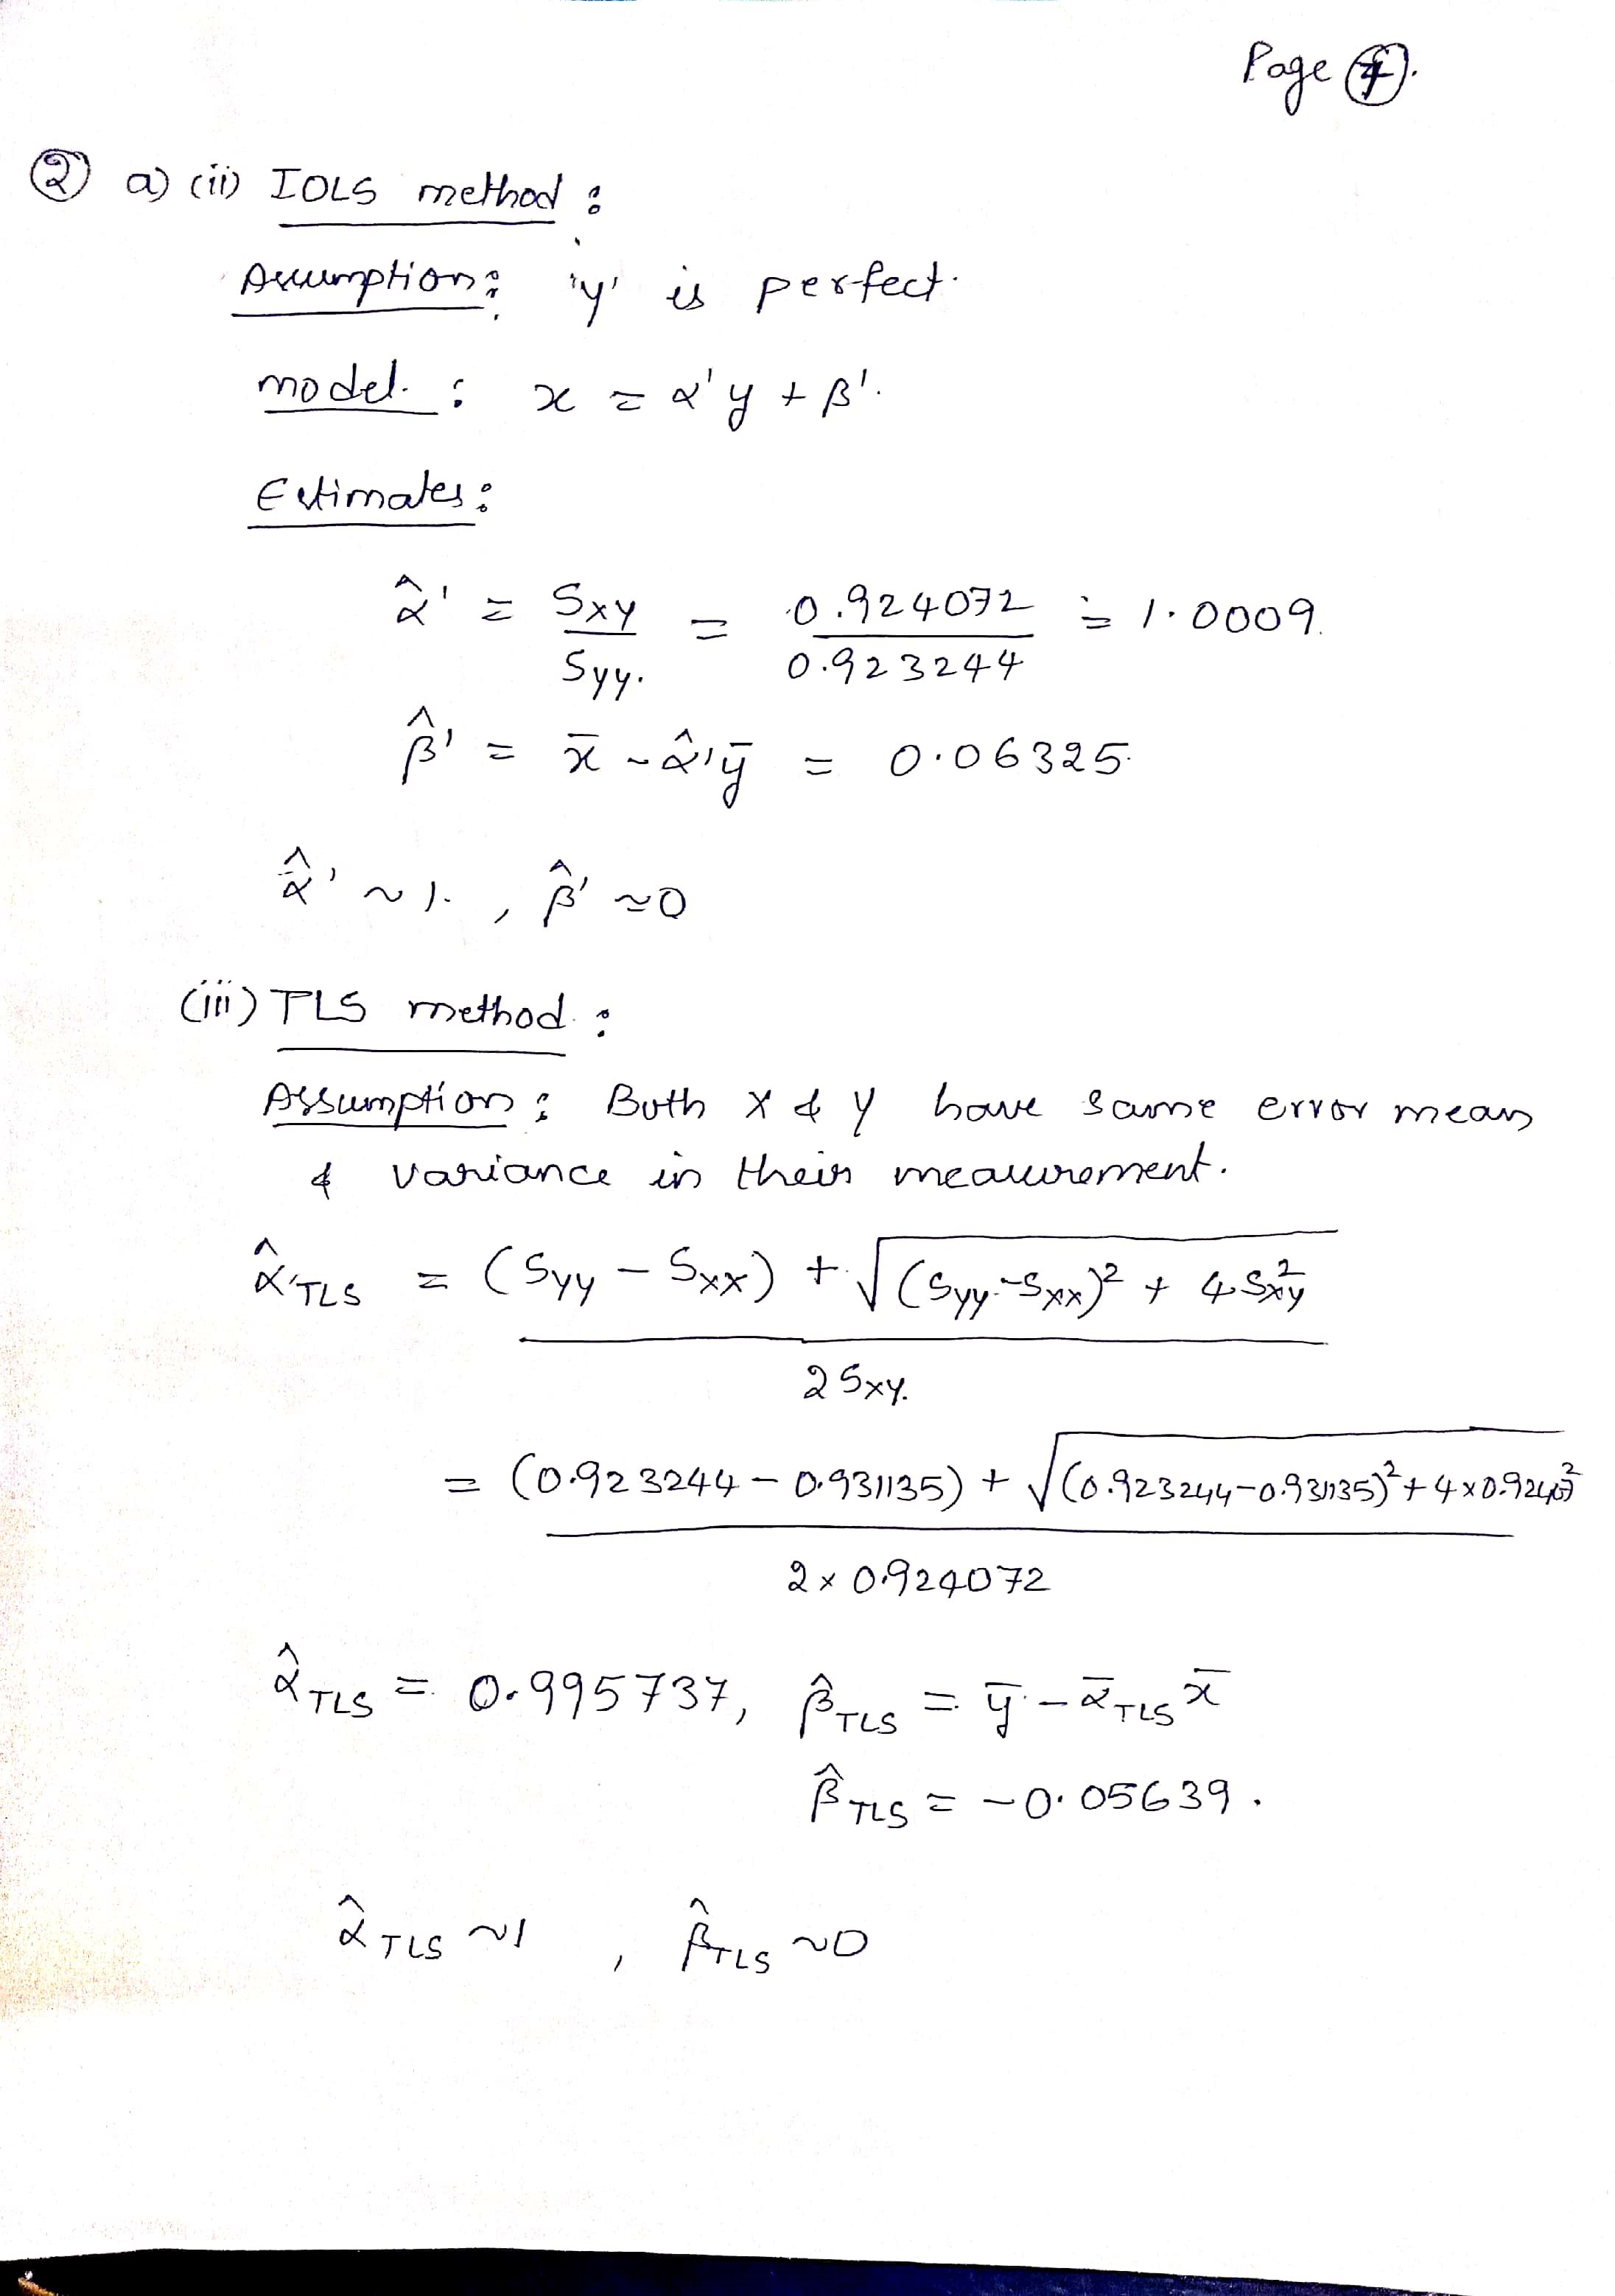 Page ④.
② a) (ii) IOLS method :
Assumption : 'y' is perfect.
model. : x = α'y + β'.
Estimates :
α̂' = Sxy / Syy. = 0.924072 / 0.923244 = 1.0009.
β̂' = x̄ - α̂'ȳ = 0.06325.
α̂' ~ 1. , β̂' ≈ 0
(iii) TLS method. :
Assumption : Both X & Y have same error mean
& variance in their measurement.
α̂TLS = (Syy - Sxx) + √((Syy - Sxx)² + 4Sxy²)
2 Sxy.
= (0.923244 - 0.931135) + √((0.923244 - 0.931135)² + 4×0.92407²)
2 × 0.924072
α̂TLS = 0.995737, β̂TLS = ȳ - ᾱTLS x̄
β̂TLS = -0.05639.
α̂TLS ~ 1 , β̂TLS ~ 0